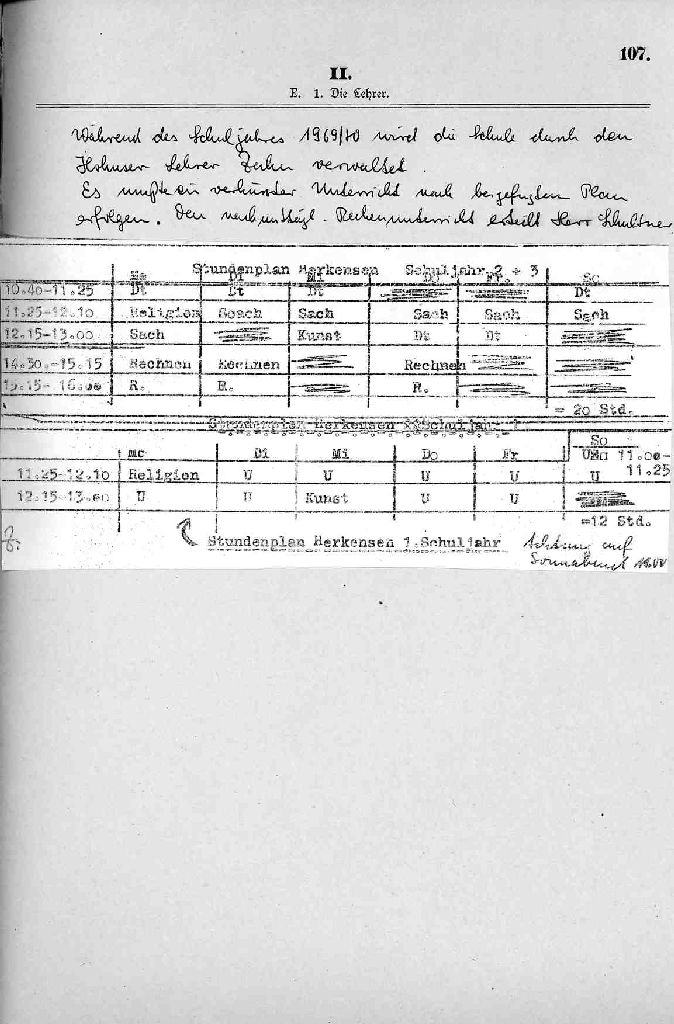 107.
II.
E. 1. Die Lehrer.
Während des Schuljahres 1969/70 wird die Schule durch den
Lehrer Zehn verwaltet.
Es mußte ein verkürzter Unterricht nach beigefügten Plan
erfolgen. Den nachmittägl. Rechenunterricht erteilt Herr Schultner
Stundenplan Merkensen Schuljahr 2 + 3
Mo Di Mi Do Fr. So
10.40-11.25 Dt Dt Dt Dt
11.25-12.10 Religion Sach Sach Sach Sach
12.15-13.00 Sach Kunst Dt Dt
14.30.-15.15 Rechnen Rechnen Rechnen
15.15- 16.00 R. R. R.
= 20 Std.
Stundenplan Merkensen Schuljahr 1
Mo Di Mi Do Fr So
11.00-
11.25-12.10 Religion U U U U U 11.25
12.15-13.00 U U Kunst U U
=12 Std.
Stundenplan Merkensen 1.Schuljahr
Achtung auf
Sonnabend